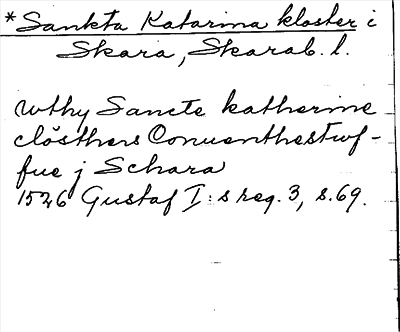 *Sankta Katarina kloster i
Skara, Skarab. l.
wthy Sancte katherine
clösthers Conuenthestwf-
fue j Schara
1526 Gustaf I:s reg. 3, s. 69.